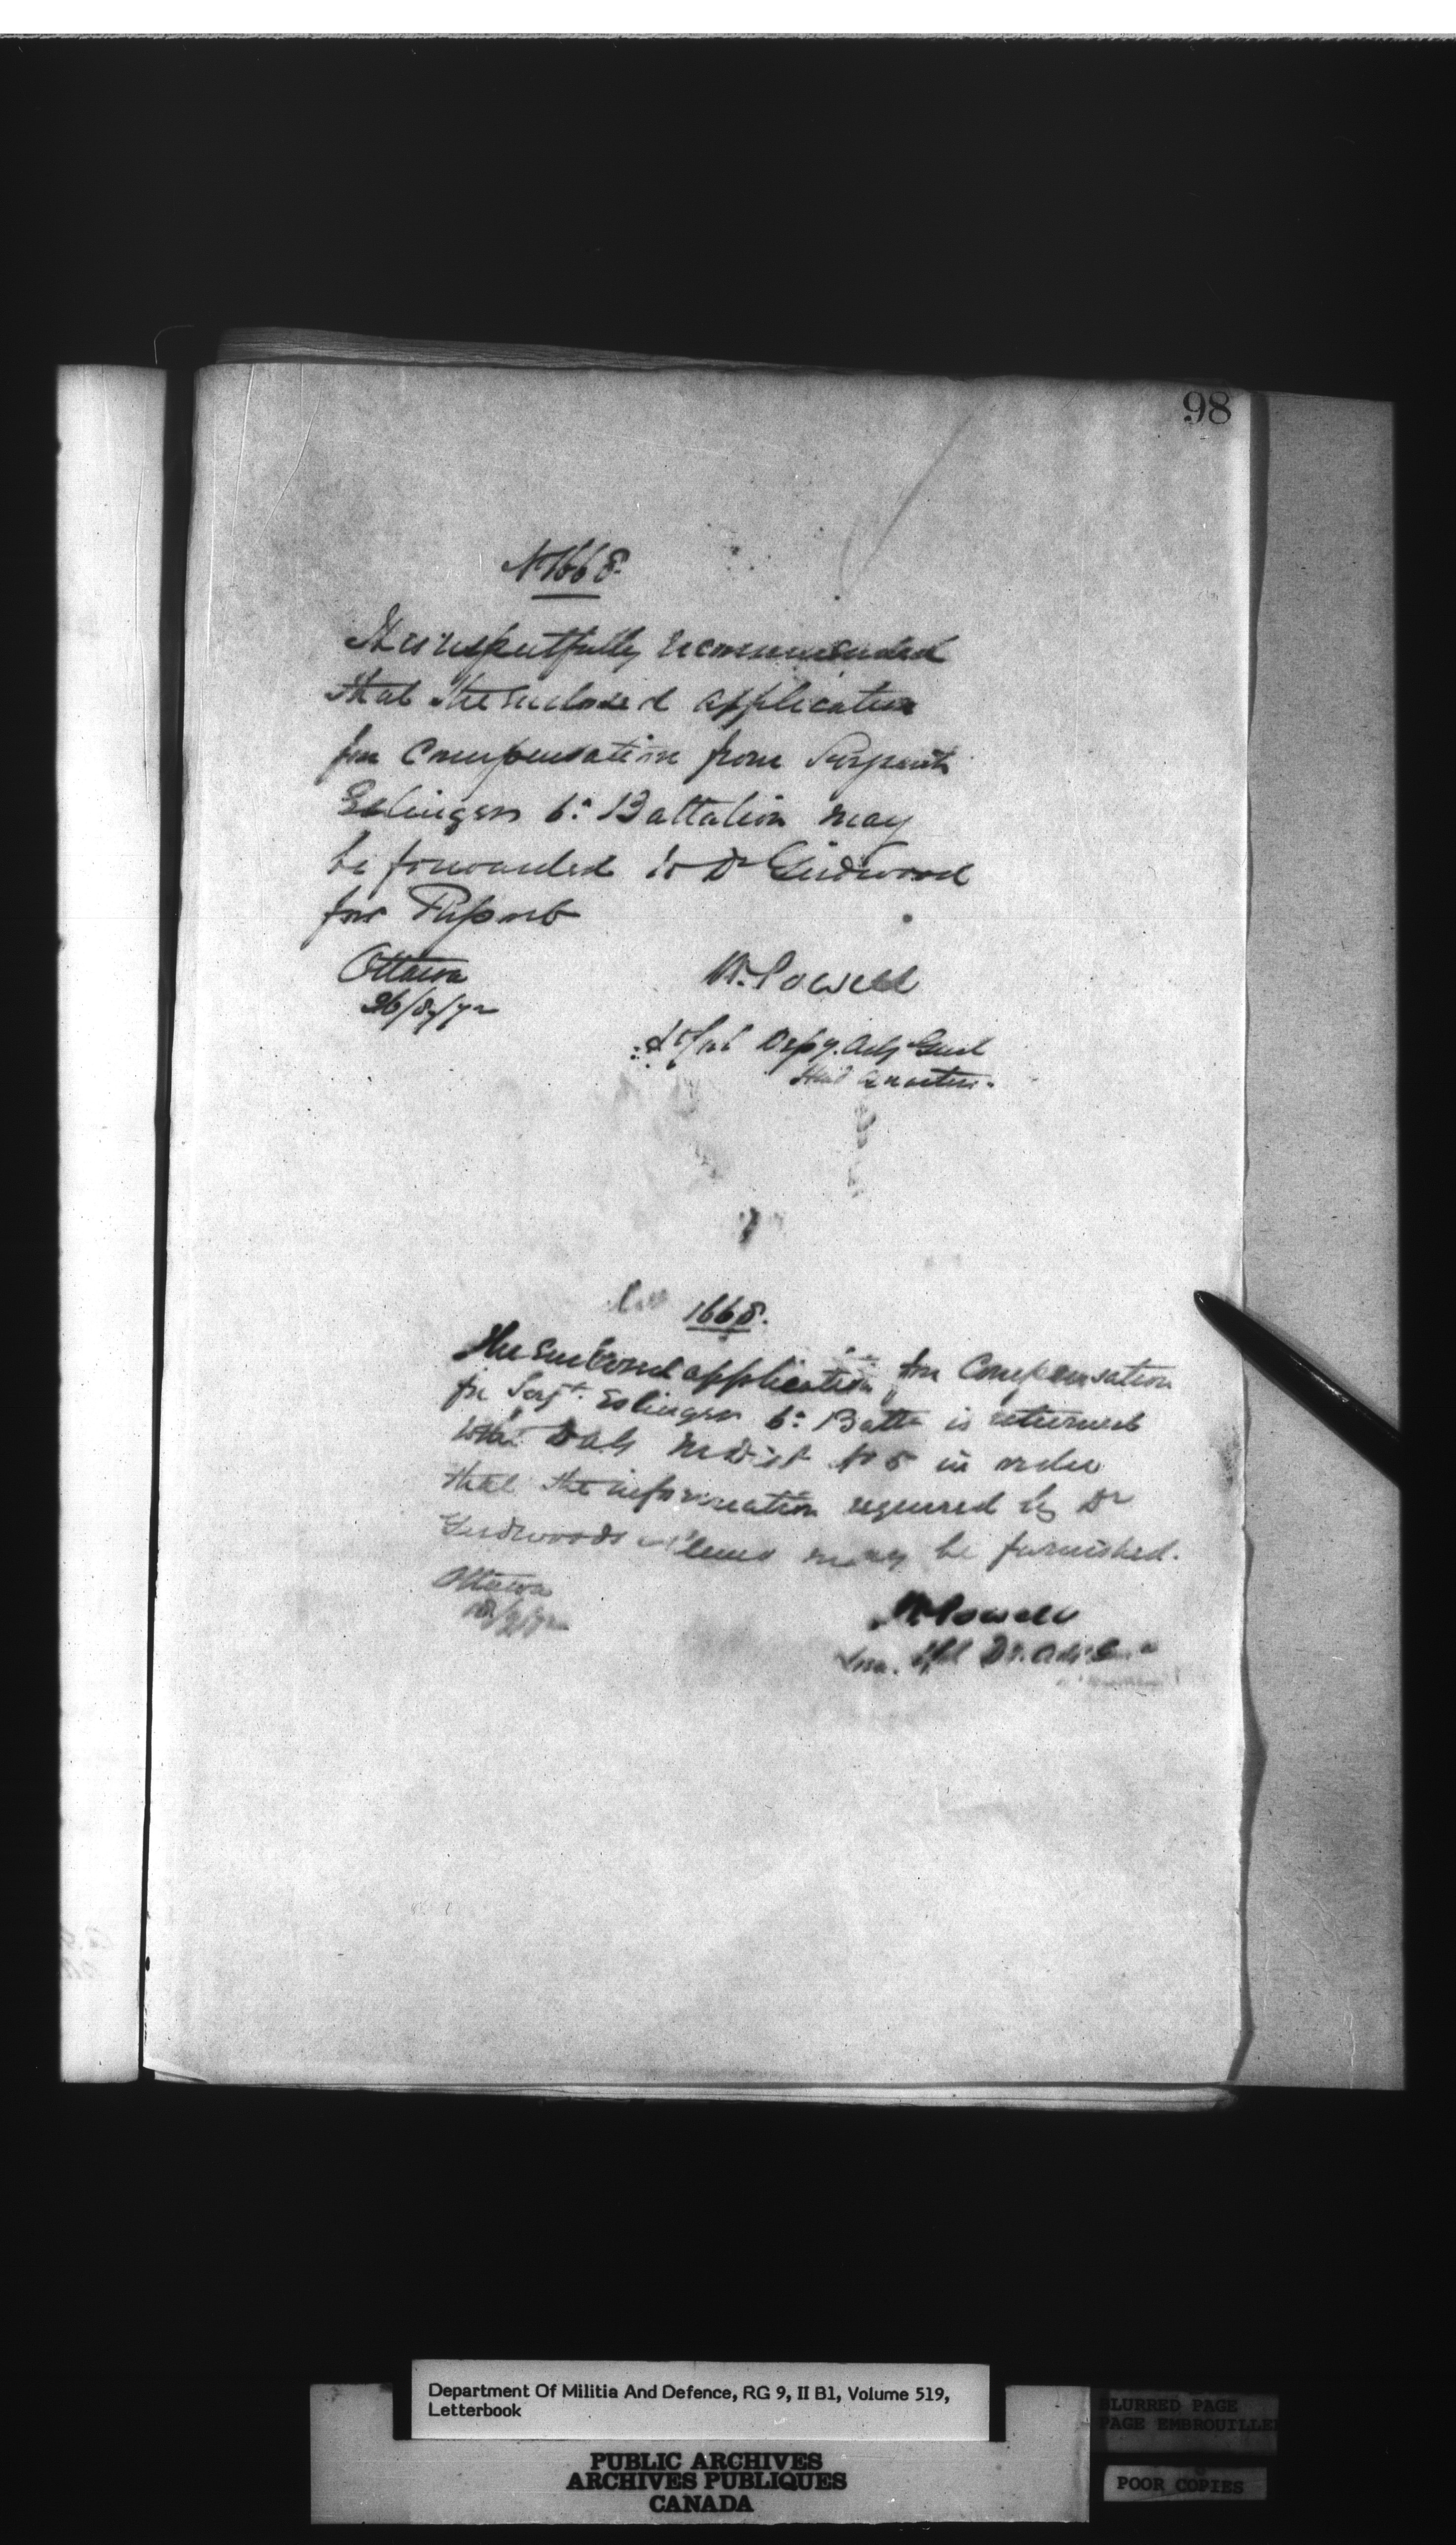 98
No 1668.
It is respectfully recommended
that the enclosed application
for Compensation from Sergeant
Eslinger 6th Battalion may
be forwarded to Dr Girdwood
for Report
Ottawa
26/8/72
W. Powell
Lt Col Depy. Adj Genl
Head Quarters.
1668.
The enclosed application for Compensation
for Sergt. Eslinger 6th Battn is returned
to the DAG M Dist No 5 in order
that the information required by Dr
Girdwoods memo may be furnished.
Ottawa
W Powell
Lt Col D. Adj G
Department Of Militia And Defence, RG 9, II B1, Volume 519,
Letterbook
PUBLIC ARCHIVES
ARCHIVES PUBLIQUES
CANADA
BLURRED PAGE
PAGE EMBROUILLEE
POOR COPIES